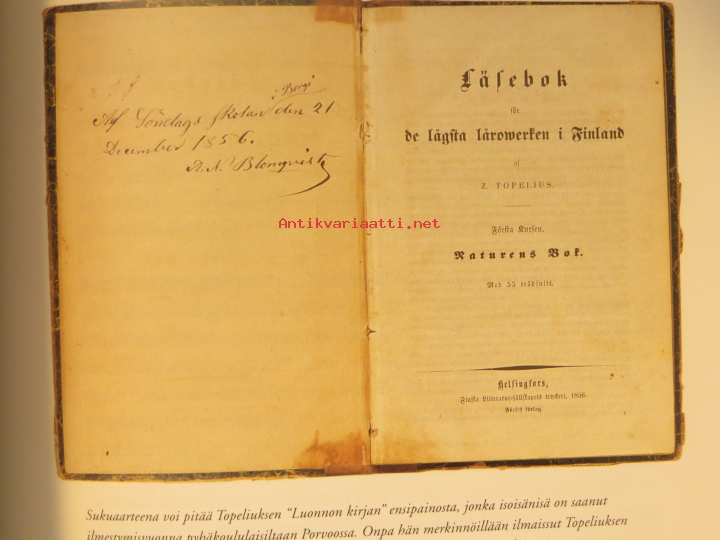 Borgå
Af Söndags skolan den 21
December 1856.
A. A. Blomqvist
Läsebok
för
de lägsta lärowerken i Finland
af
Z. TOPELIUS.
Första Kursen.
Naturens Bok.
Med 55 träsnitt.
Helsingfors,
Finska Litteratur-sällskapets tryckeri, 1856.
Förfs förlag.
Antikvariaatti.net
Sukuaarteena voi pitää Topeliuksen "Luonnon kirjan" ensipainosta, jonka isoisänisä on saanut
ilmestymisvuonna pyhäkoululaisiltaan Porvoossa. Onpa hän merkinnöillään ilmaissut Topeliuksen